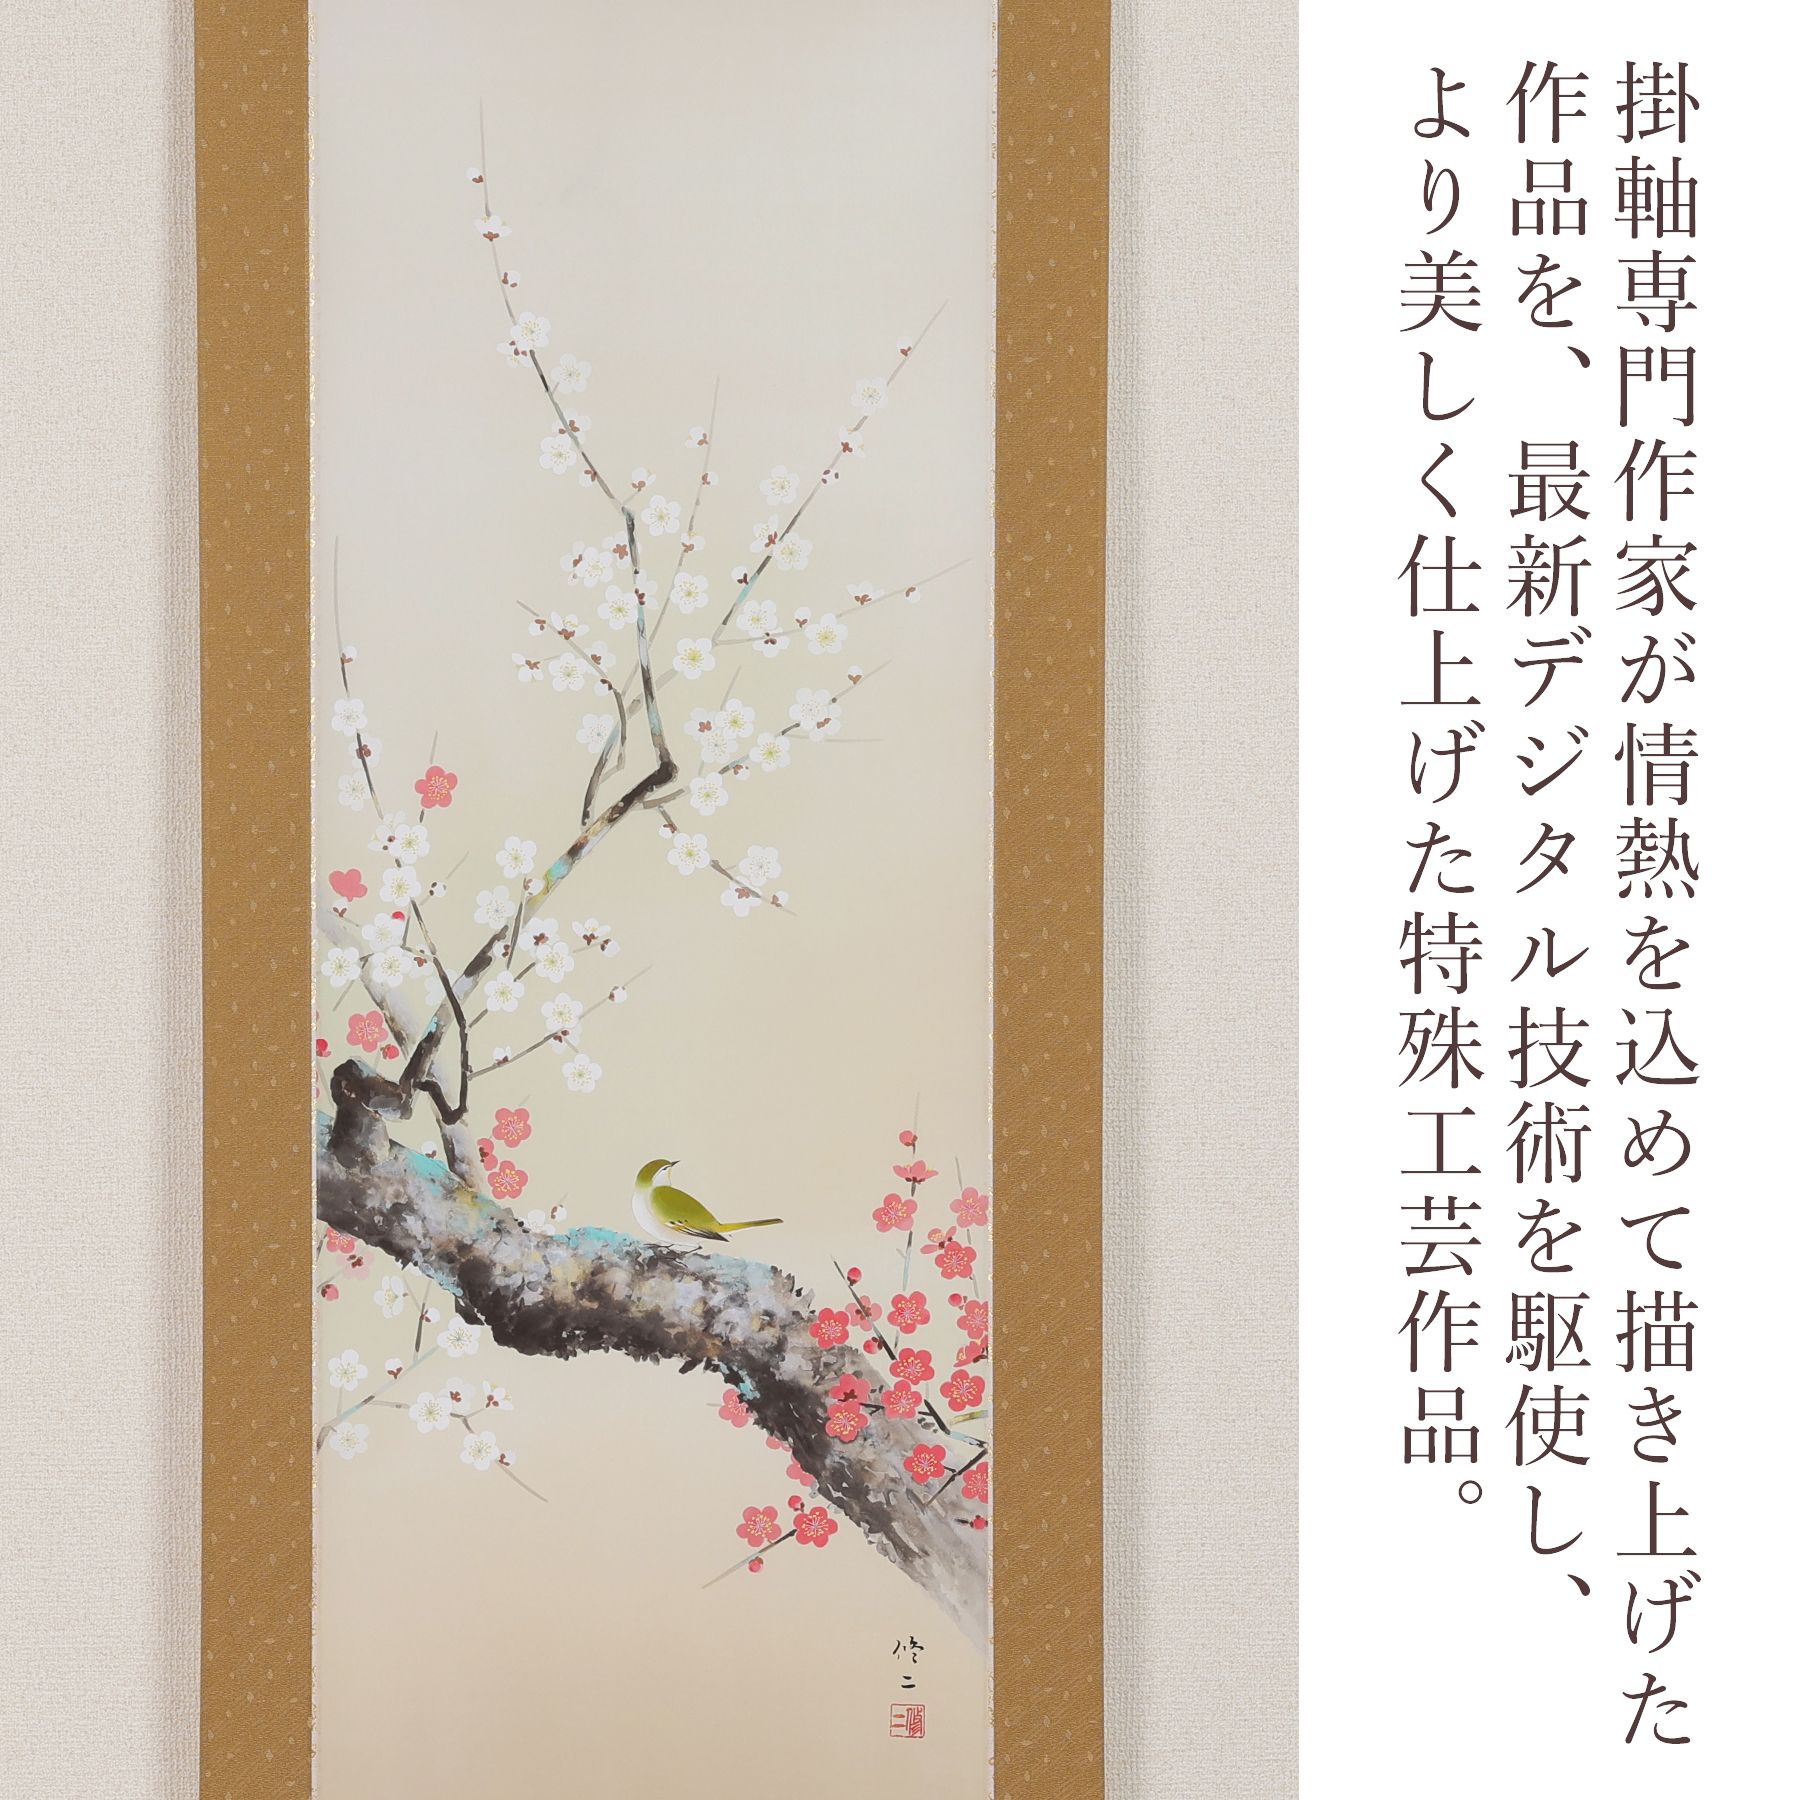 掛軸専門作家が情熱を込めて描き上げた
作品を、最新デジタル技術を駆使し、
より美しく仕上げた特殊工芸作品。
修二